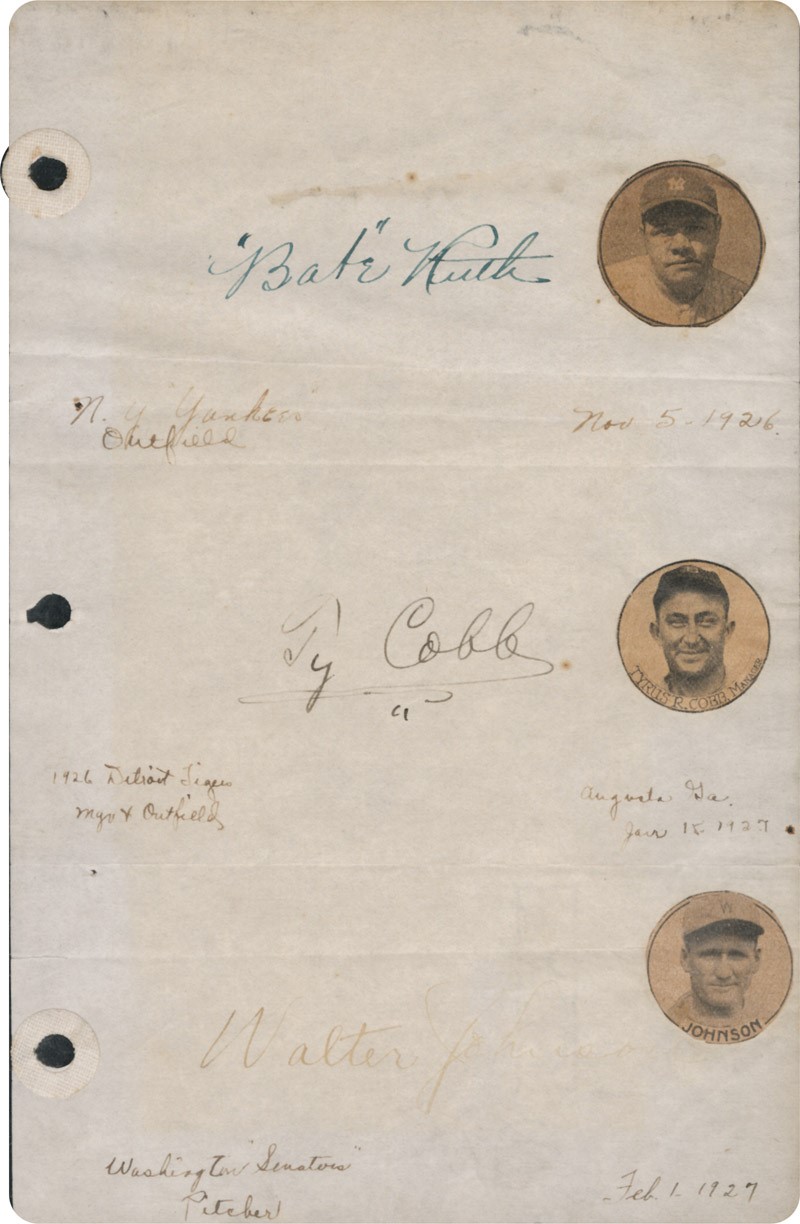 NY
"Babe" Ruth
N. Y. Yankees
Outfield
Nov 5-1926.
Ty Cobb
TYRUS R. COBB MANAGER
1926 Detroit Tigers
Mgr & Outfield
Augusta Ga.
Jan 15 1927
W
JOHNSON
Walter Johnson
Washington "Senators"
Pitcher
Feb. 1-1927